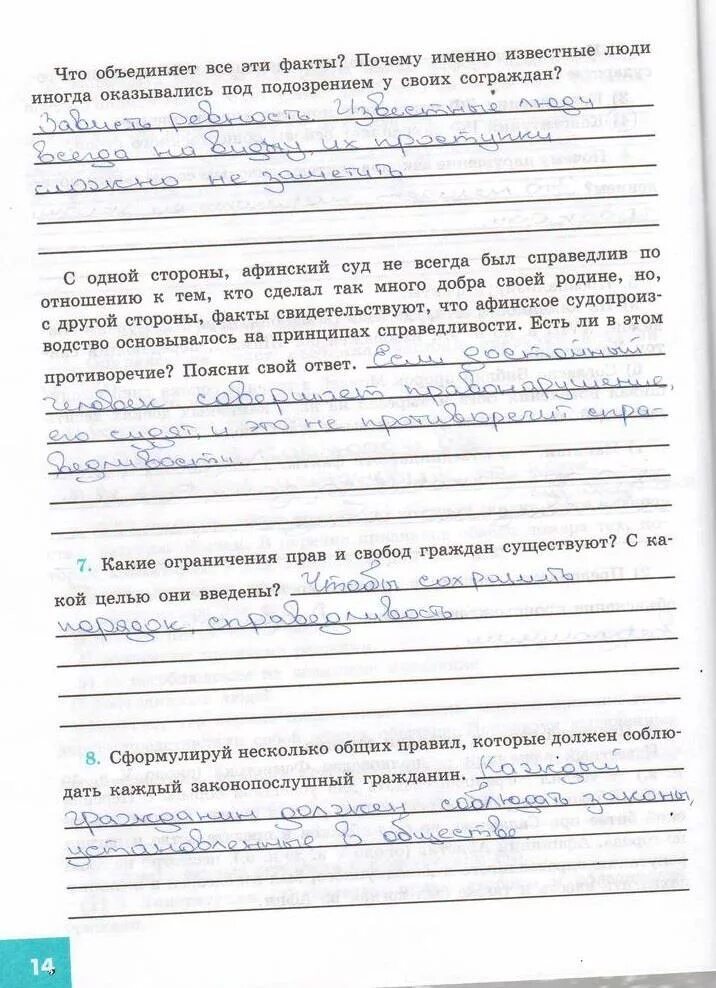 Что объединяет все эти факты? Почему именно известные люди
иногда оказывались под подозрением у своих сограждан?
Зависть ревность Известные люди
всегда на виду их проступки
сложно не заметить
С одной стороны, афинский суд не всегда был справедлив по
отношению к тем, кто сделал так много добра своей родине, но,
с другой стороны, факты свидетельствуют, что афинское судопроиз-
водство основывалось на принципах справедливости. Есть ли в этом
противоречие? Поясни свой ответ. Если достойный
человек совершает правонарушение,
его судят, и это не противоречит спра-
ведливости.
7. Какие ограничения прав и свобод граждан существуют? С ка-
кой целью они введены? Чтобы сохранить
порядок, справедливость
8. Сформулируй несколько общих правил, которые должен соблю-
дать каждый законопослушный гражданин. Каждый
гражданин должен соблюдать законы,
установленные в обществе
14